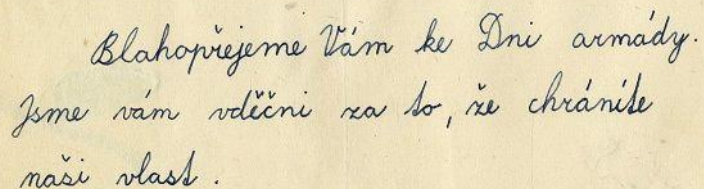 Blahopřejeme Vám ke Dni armády.
Jsme vám vděčni za to, že chráníte
naši vlast.